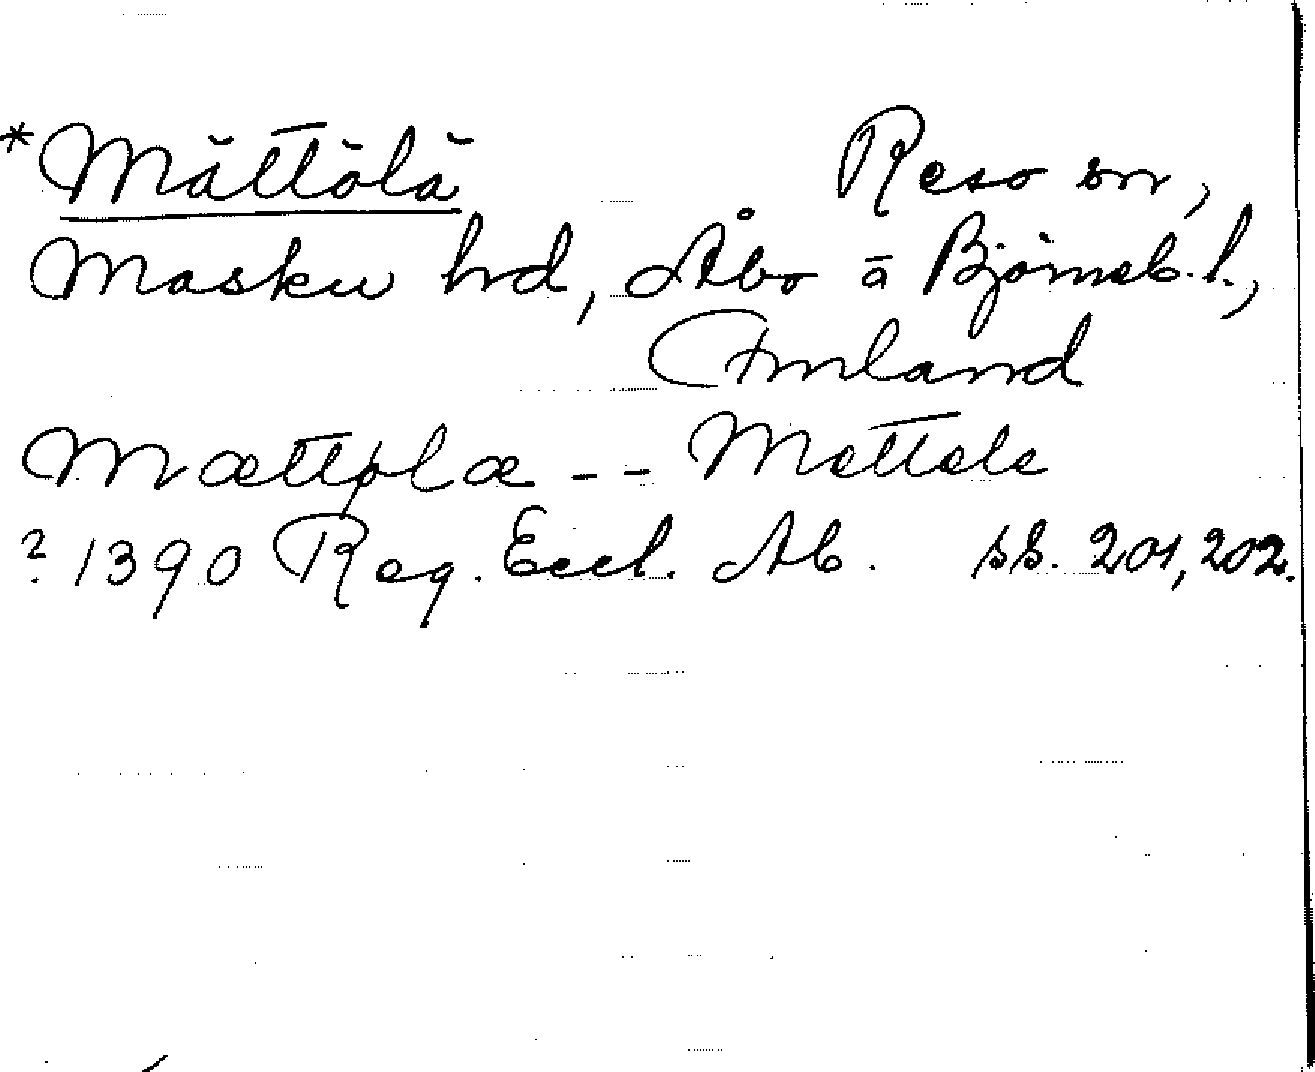 *Mättölä Reso sn,
Masku hd, Åbo o Björneb. l.,
Finland
Mættølæ -- Mettele
? 1390 Reg. Eccl. Ab. ss. 201, 202.